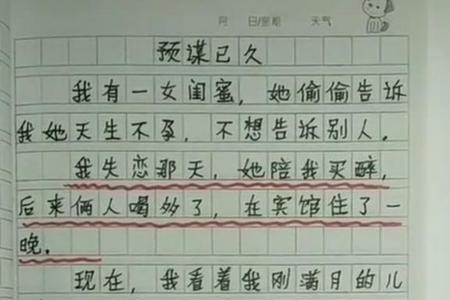 月 日/星期 天气
预谋已久
我有一女闺蜜，她偷偷告诉
我她天生不孕，不想告诉别人。
我失恋那天，她陪我买醉，
后来俩人喝多了，在宾馆住了一
晚。
现在，我看着我刚满月的儿